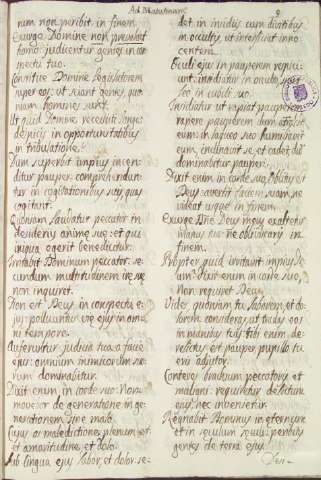 Ad Matutinum
9
rum non peribit in finem
Exurge Domine non prevaleat
homo judicentur gentes in cons
pectu tuo.
Constitue Domine legislatorem
super eos: ut sciant gentes, quo
niam homines sunt.
Ut quid Domine recessisti longe
despicis in opportunitatibus
in tribulatione.
Dum superbit impius incen
ditur pauper comprehendun
tur in cogitationibus suis, quas
cogitant.
Quoniam laudatur peccator in
desiderijs animę suę: et qui
iniqua ogerit benedicitur.
Irritabit Dominum peccator se
cundum multitudinem irę suę
non inquiret.
Non est Deus in conspectu e
jus: polluuntur vię ejus in om
ni tempore.
Auferuntur judicia tua a facie
ejus: omnium inimicorum suo
rum dominabitur.
Dixit enim in corde suo: Non
movebor de generatione in ge
nerationem sine malo.
Cujus os maledictione plenum est
et amaritudine, et dolo.
sub lingua ejus labor, et dolor. se-
det in insidiis cum divitibus
in occultis ut interficiat inno
centem.
Oculi ejus in pauperem respici
unt: insidiatur in occulto, quasi
leo in cubili suo.
Insidiatur ut rapiat pauperem
rapere pauperem dum attrahit
eum: in laqueo suo humiliabit
eum, inclinabit se, et cadet dum
dominabitur pauper.
Dixit enim in corde suo, oblitus est
Deus: avertit faciem suam, ne
videat usque in finem.
Exurge Dñe Deus meus exaltetur
manus tua: ne obliviscaris in
finem.
Propter quid irritavit impius De
um? dixit enim in corde suo,
Non requiret Deus.
Vides, quoniam tu laborem, et do
lorem consideras, ut tradas eos
in manibus tuis: tibi enim de
relictus est pauper, pupillo tu
eris adjutor.
Contere brachium peccatoris et
maligni: requiretur delictum
ejus, nec invenietur.
Regnabit Dominus in eternum
et in seculum seculi: peribitis
gentes de terra ejus.